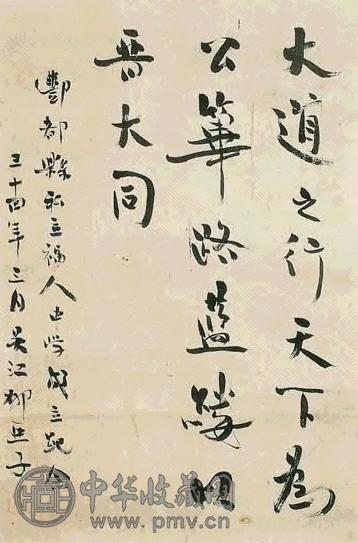 大道之行天下为
公篳路蓝縷
晋大同
酆都縣私立福人中学成立紀念
三十四年三月吴江柳亞子
中华收藏网
www.pmv.cn